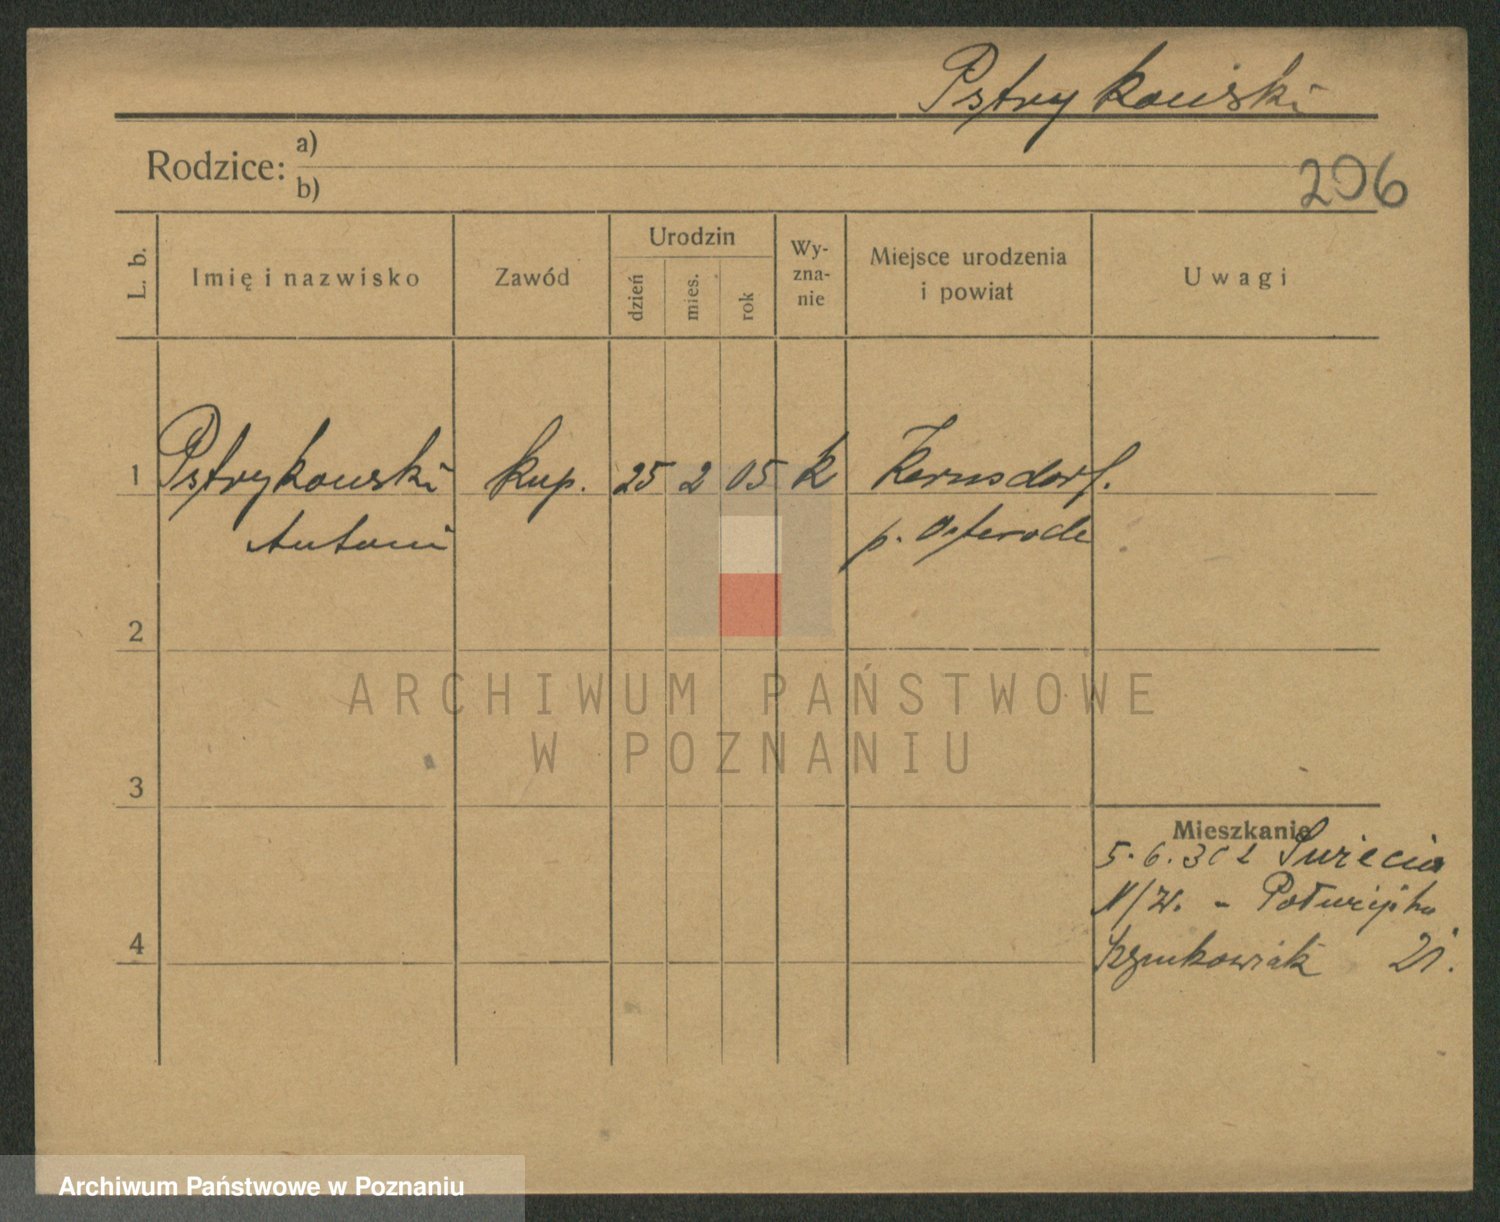 Pstrykowski
Rodzice: a)
b)
206
L. b.
Imię i nazwisko
Zawód
Urodzin
dzień
mies.
rok
Wy-
zna-
nie
Miejsce urodzenia
i powiat
Uwagi
1 Pstrykowski kup. 25 2 05 k Kernsdorf.
Antoni p. Osterode
2
ARCHIWUM PAŃSTWOWE
W POZNANIU
3
Mieszkanie
5.6.30 z Świecia
N/W. - Półwiejska
21.
4
Archiwum Państwowe w Poznaniu